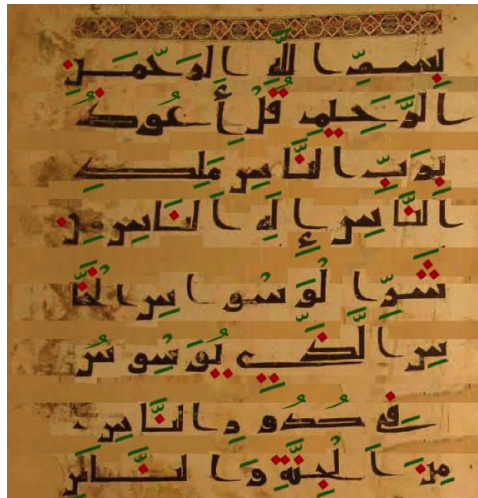 بِسْمِ اللَّهِ الرَّحْمَنِ
الرَّحِيمِ قُلْ أَعُوذُ
بِرَبِّ النَّاسِ مَلِكِ
النَّاسِ إِلَهِ النَّاسِ مِن
شَرِّ الْوَسْوَاسِ الْخَنَّا
سِ الَّذِي يُوَسْوِسُ
فِي صُدُورِ النَّاسِ
مِنَ الْجِنَّةِ وَالنَّاسِ